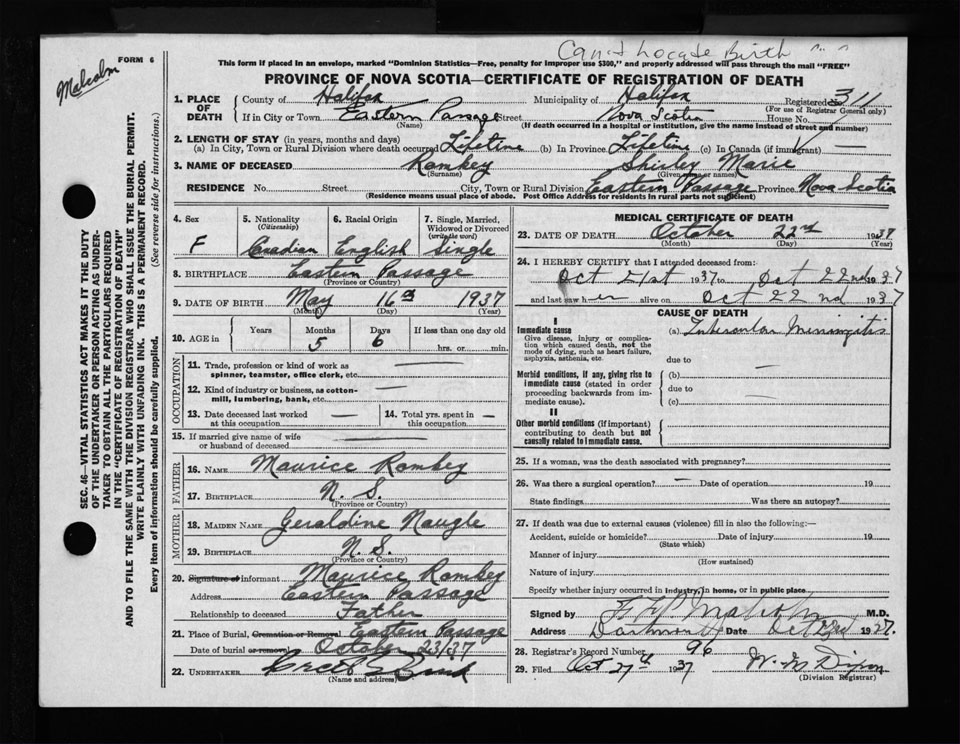 Can't Locate Birth " "
FORM 6
Malcolm
This form if placed in an envelope, marked "Dominion Statistics—Free, penalty for improper use $300," and properly addressed will pass through the mail "FREE"
PROVINCE OF NOVA SCOTIA—CERTIFICATE OF REGISTRATION OF DEATH
1. PLACE OF DEATH County of Halifax Municipality of Halifax Registered No. 311
(For use of Registrar General only)
If in City or Town Eastern Passage Street Nova Scotia House No.
(Name) (If death occurred in a hospital or institution, give the name instead of street and number)
2. LENGTH OF STAY (in years, months and days)
(a) In City, Town or Rural Division where death occurred Lifetime (b) In Province Lifetime (c) In Canada (if immigrant) —
3. NAME OF DECEASED Romkey Shirley Marie
(Surname) (Given name or names)
RESIDENCE No. Street City, Town or Rural Division Eastern Passage Province Nova Scotia
(Residence means usual place of abode. Post Office Address for residents in rural parts not sufficient)
4. Sex F
5. Nationality (Citizenship) Canadian
6. Racial Origin English
7. Single, Married, Widowed or Divorced (write the word) Single
8. BIRTHPLACE Eastern Passage
(Province or Country)
9. DATE OF BIRTH May 16 1937
(Month) (Day) (Year)
10. AGE in Years Months Days If less than one day old
5 6 hrs. or min.
OCCUPATION
11. Trade, profession or kind of work as spinner, teamster, office clerk, etc. —
12. Kind of industry or business, as cotton-mill, lumbering, bank, etc. —
13. Date deceased last worked at this occupation —
14. Total yrs. spent in this occupation —
15. If married give name of wife or husband of deceased —
FATHER
16. NAME Maurice Romkey
17. BIRTHPLACE N. S.
(Province or Country)
MOTHER
18. MAIDEN NAME Geraldine Naugle
19. BIRTHPLACE N. S.
(Province or Country)
20. Signature of informant Maurice Romkey
Address Eastern Passage
Relationship to deceased Father
21. Place of Burial, Cremation or Removal Eastern Passage
Date of burial or removal October 23/37
22. UNDERTAKER
(Name and address)
MEDICAL CERTIFICATE OF DEATH
23. DATE OF DEATH October 22nd 1937
(Month) (Day) (Year)
24. I HEREBY CERTIFY that I attended deceased from:
Oct 21st 1937 to Oct 22nd 1937
and last saw her alive on Oct 22nd 1937
CAUSE OF DEATH
I
Immediate cause
Give disease, injury or complication which caused death, not the mode of dying, such as heart failure, asphyxia, asthenia, etc.
(a) Tubercular Meningitis
due to
Morbid conditions, if any, giving rise to immediate cause (stated in order proceeding backwards from immediate cause).
(b) —
due to
(c) —
II
Other morbid conditions (if important) contributing to death but not causally related to immediate cause.
25. If a woman, was the death associated with pregnancy?
26. Was there a surgical operation? — Date of operation 19
State findings Was there an autopsy?
27. If death was due to external causes (violence) fill in also the following:—
Accident, suicide or homicide? Date of injury 19
(State which)
Manner of injury
(How sustained)
Nature of injury
Specify whether injury occurred in industry, in home, or in public place
Signed by Malcolm M.D.
Address Dartmouth Date Oct 22nd 1937.
28. Registrar's Record Number 96
29. Filed Oct 27th 1937
(Division Registrar)
SEC. 46—VITAL STATISTICS ACT MAKES IT THE DUTY
OF THE UNDERTAKER OR PERSON ACTING AS UNDER-
TAKER TO OBTAIN ALL THE PARTICULARS REQUIRED
IN THE "CERTIFICATE OF REGISTRATION OF DEATH"
AND TO FILE THE SAME WITH THE DIVISION REGISTRAR WHO SHALL ISSUE THE BURIAL PERMIT.
WRITE PLAINLY WITH UNFADING INK. THIS IS A PERMANENT RECORD.
Every item of information should be carefully supplied. (See reverse side for instructions.)